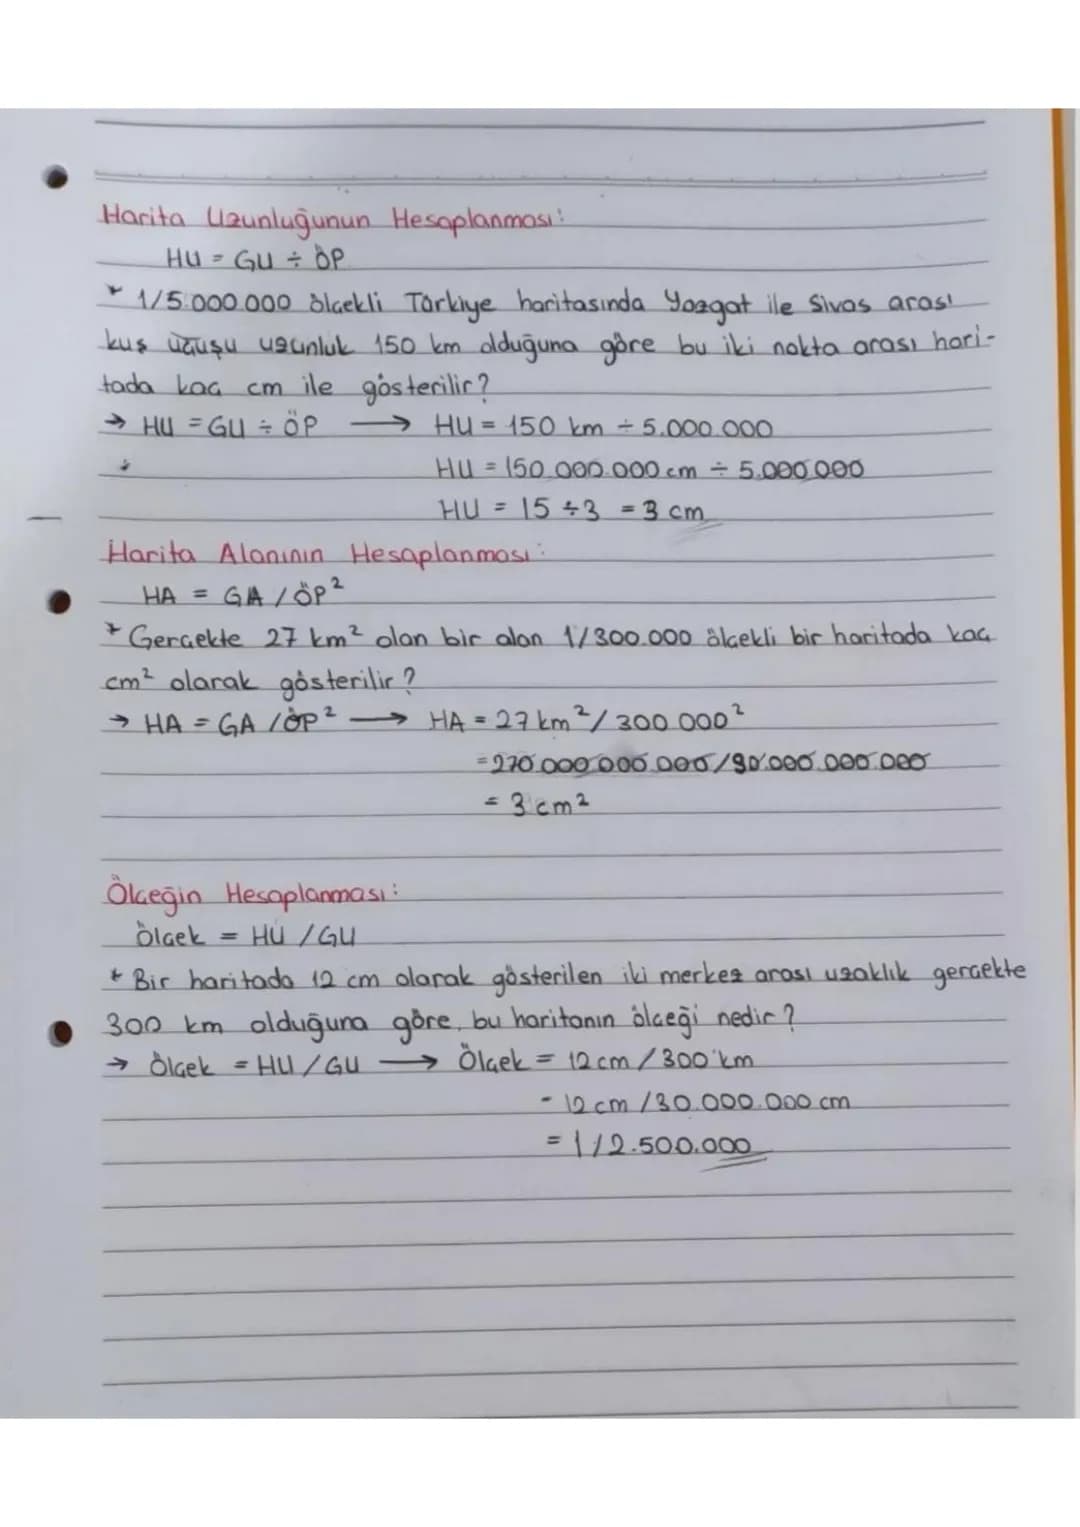 Harita Uzunluğunun Hesaplanması:
HU = GU ÷ ÖP
* 1/5.000.000 ölçekli Türkiye haritasında Yozgat ile Sivas arası
kuş uçuşu uzunluk 150 km olduğuna göre bu iki nokta arası hari-
tada kaç cm ile gösterilir?
→ HU = GU ÷ ÖP → HU = 150 km ÷ 5.000.000
HU = 150.000.000 cm ÷ 5.000.000
HU = 15 ÷ 3 = 3 cm
Harita Alanının Hesaplanması:
HA = GA / ÖP²
* Gerçekte 27 km² olan bir alan 1/300.000 ölçekli bir haritada kaç
cm² olarak gösterilir?
→ HA = GA / ÖP² → HA = 27 km² / 300.000²
= 270.000.000.000 / 90.000.000.000
= 3 cm²
Ölçeğin Hesaplanması:
Ölçek = HU / GU
* Bir haritada 12 cm olarak gösterilen iki merkez arası uzaklık gerçekte
300 km olduğuna göre, bu haritanın ölçeği nedir?
→ Ölçek = HU / GU → Ölçek = 12 cm / 300 km
= 12 cm / 30.000.000 cm
= 1 / 2.500.000